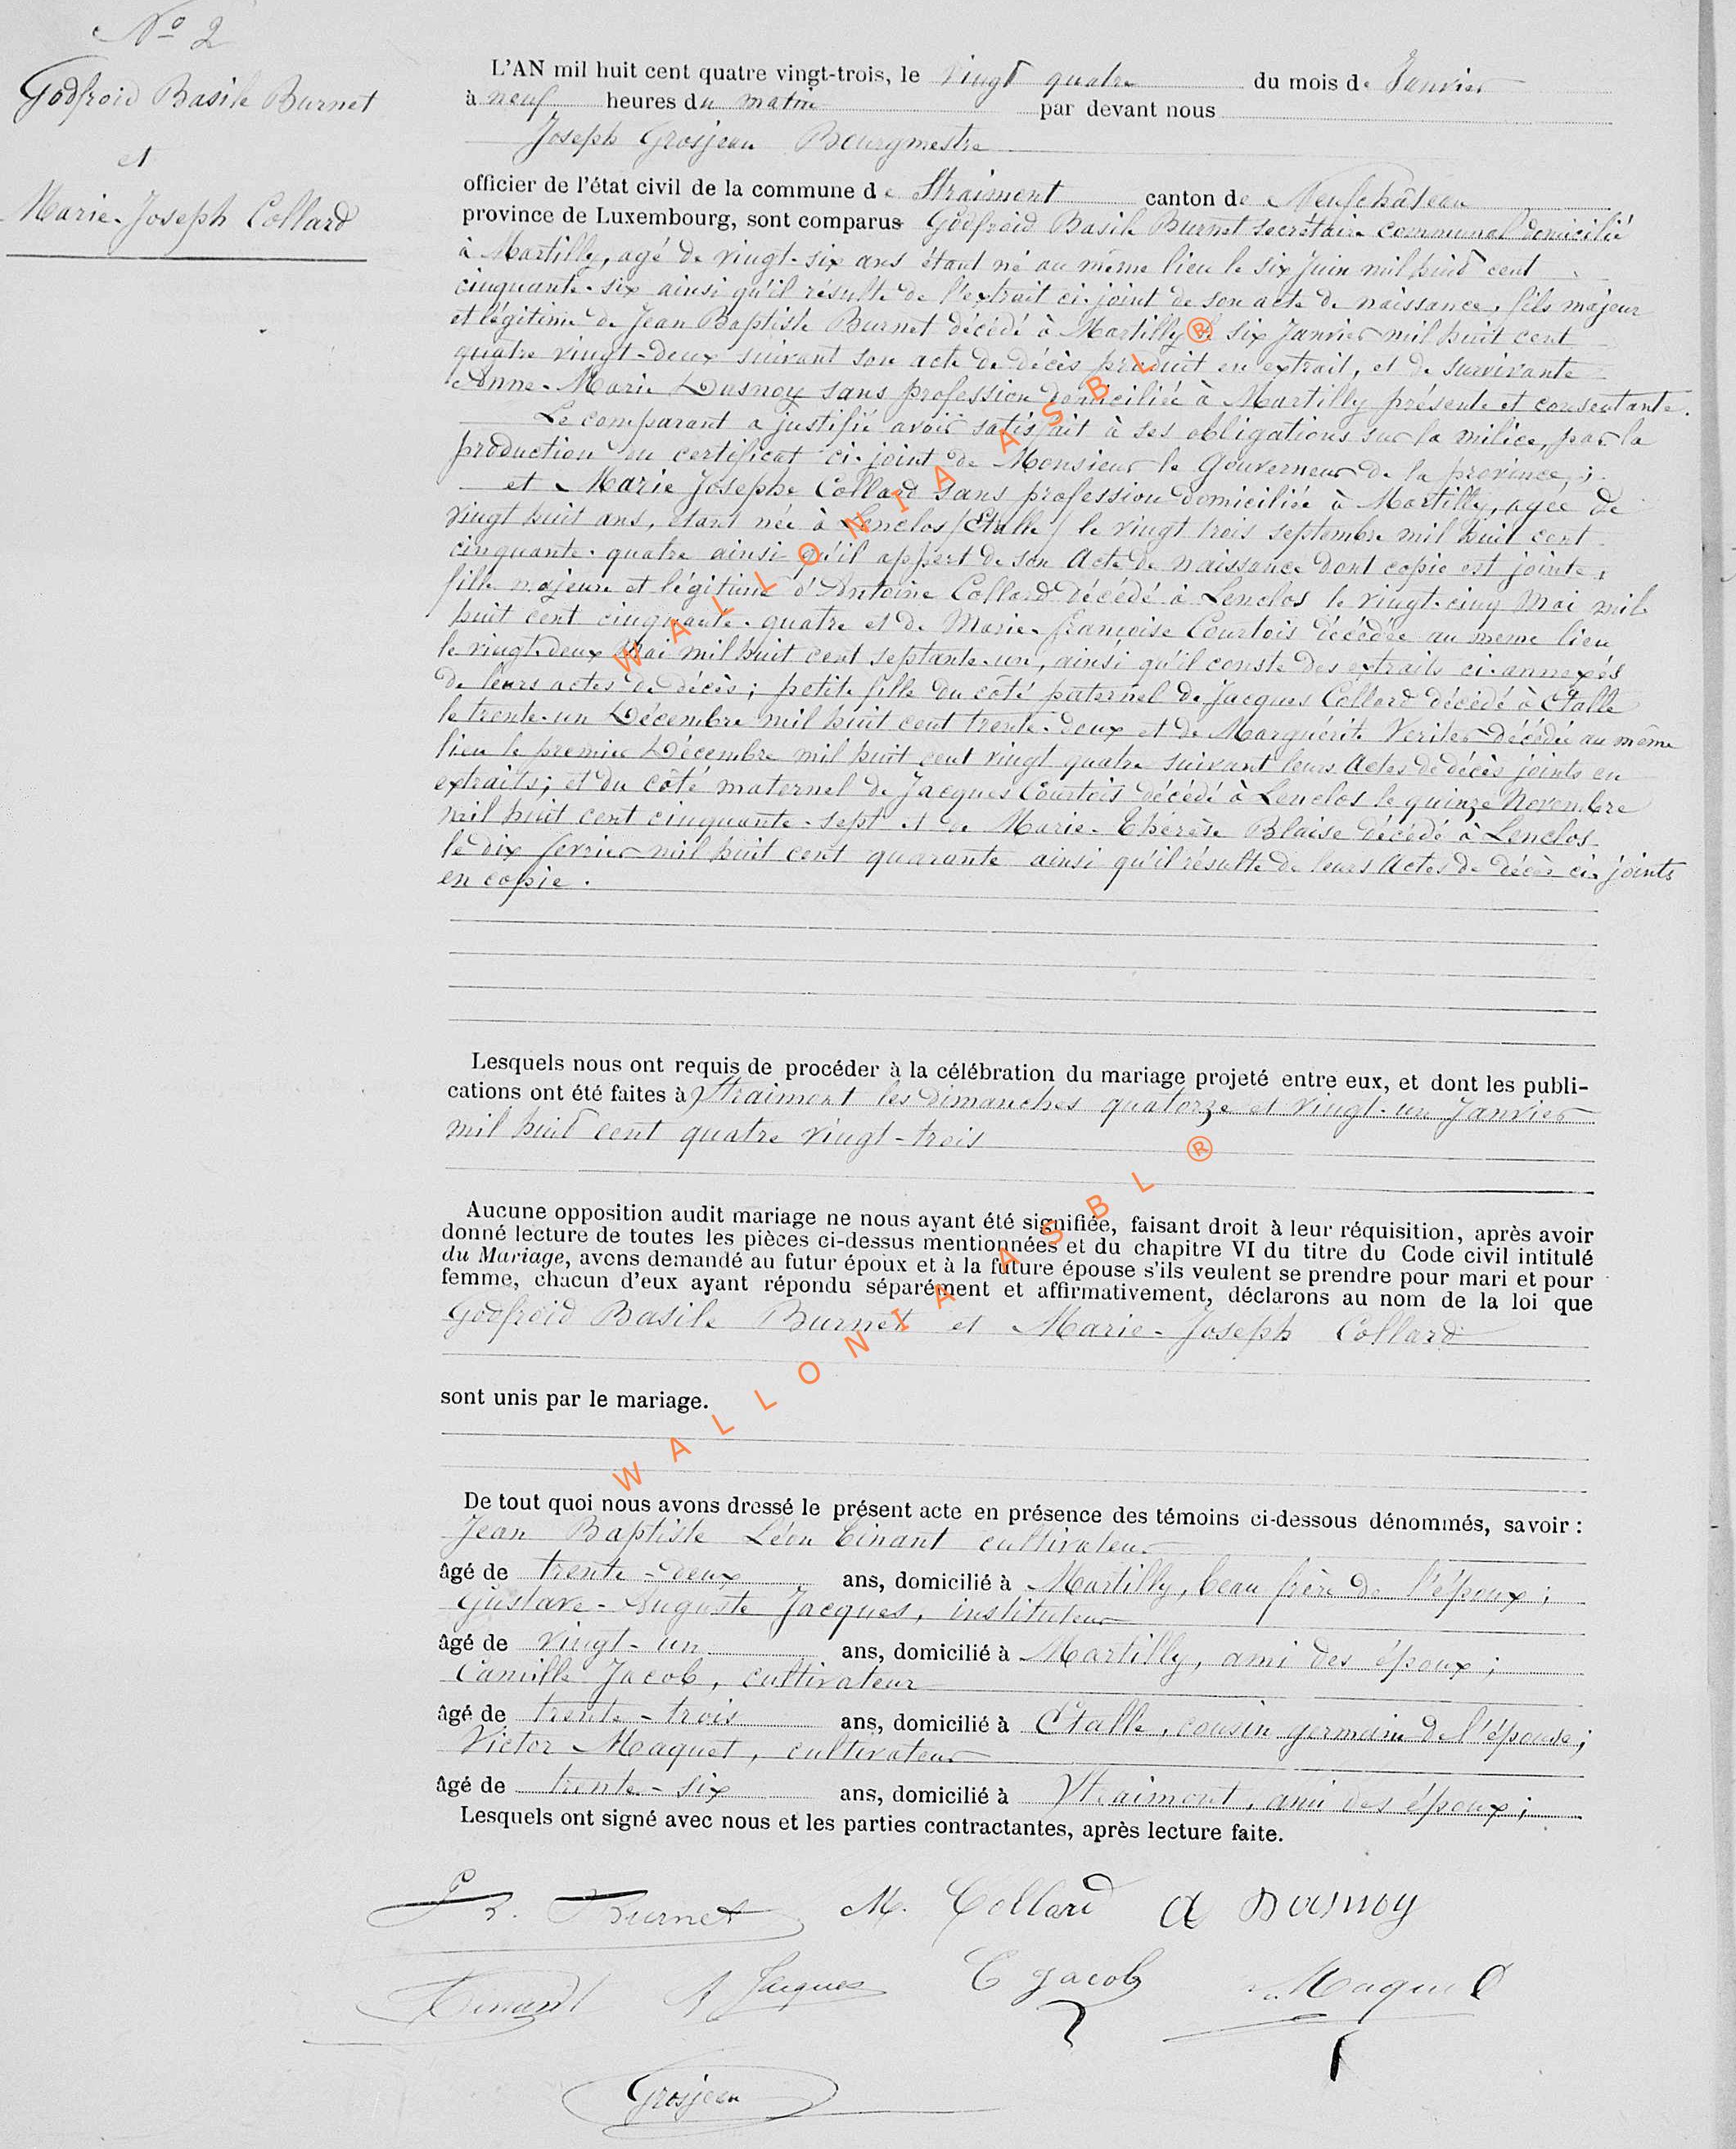 No 2
Godfroid Basile Burnet
et
Marie-Joseph Collard
L'AN mil huit cent quatre vingt-trois, le vingt quatre du mois de Janvier
à neuf heures du matin par devant nous
Joseph Grosjean Bourgmestre
officier de l'état civil de la commune de Straimont canton de Neufchâteau
province de Luxembourg, sont comparus Godfroid Basile Burnet secrétaire communal domicilié
à Martilly, agé de vingt-six ans étant né au même lieu le six Juin mil huit cent
cinquante-six ainsi qu'il résulte de l'extrait ci-joint de son acte de naissance, fils majeur
et légitime de Jean Baptiste Burnet décédé à Martilly le six Janvier mil huit cent
quatre vingt-deux suivant son acte de décès produit en extrait, et de survivante
Anne-Marie Dasnoy sans profession domiciliée à Martilly présente et consentante.
Le comparant a justifié avoir satisfait à ses obligations sur la milice, par la
production du certificat ci-joint de Monsieur le Gouverneur de la province ;
et Marie Josephe Collard sans profession domiciliée à Martilly, agée de
vingt huit ans, étant née à Lenclos (Etalle) le vingt trois septembre mil huit cent
cinquante-quatre ainsi qu'il appert de son Acte de naissance dont copie est jointe,
fille majeure et légitime d'Antoine Collard décédé à Lenclos le vingt-cinq Mai mil
huit cent cinquante-quatre et de Marie-françoise Courtois décédée au même lieu
le vingt-deux Mai mil huit cent septante-un, ainsi qu'il conste des extraits ci-annexés
de leurs actes de décès ; petite fille du côté paternel de Jacques Collard décédé à Etalle
le trente-un Décembre mil huit cent trente-deux et de Marguérite Veriter décédée au même
lieu le premier Décembre mil huit cent vingt quatre suivant leurs Actes de décès joints en
extraits ; et du côté maternel de Jacques Courtois décédé à Lenclos le quinze Novembre
mil huit cent cinquante-sept et de Marie-Thérèse Blaise décédé à Lenclos
le dix fevrier mil huit cent quarante ainsi qu'il résulte de leurs Actes de décès ci-joints
en copie.
Lesquels nous ont requis de procéder à la célébration du mariage projeté entre eux, et dont les publi-
cations ont été faites à Straimont les dimanches quatorze et vingt-un Janvier
mil huit cent quatre vingt-trois
Aucune opposition audit mariage ne nous ayant été signifiée, faisant droit à leur réquisition, après avoir
donné lecture de toutes les pièces ci-dessus mentionnées et du chapitre VI du titre du Code civil intitulé
du Mariage, avons demandé au futur époux et à la future épouse s'ils veulent se prendre pour mari et pour
femme, chacun d'eux ayant répondu séparément et affirmativement, déclarons au nom de la loi que
Godfroid Basile Burnet et Marie-Joseph Collard
sont unis par le mariage.
De tout quoi nous avons dressé le présent acte en présence des témoins ci-dessous dénommés, savoir :
Jean Baptiste Léon Tinant cultivateur
âgé de trente-deux ans, domicilié à Martilly, beau frère de l'époux ;
Gustave-Auguste Jacques, instituteur
âgé de vingt-un ans, domicilié à Martilly, ami des époux ;
Camille Jacob, cultivateur
âgé de trente-trois ans, domicilié à Etalle, cousin germain de l'épouse ;
Victor Maquet, cultivateur
âgé de trente-six ans, domicilié à Straimont, ami des époux ;
Lesquels ont signé avec nous et les parties contractantes, après lecture faite.
Burnet M. Collard A Dasnoy
Tinant Jacques C Jacob Maquet
Grosjean
WALLONIA ASBL ®
WALLONIA ASBL ®